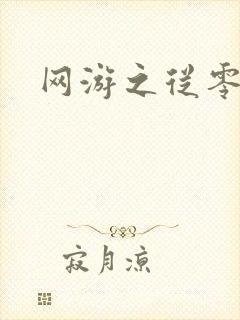 网游之从零
寂月凉